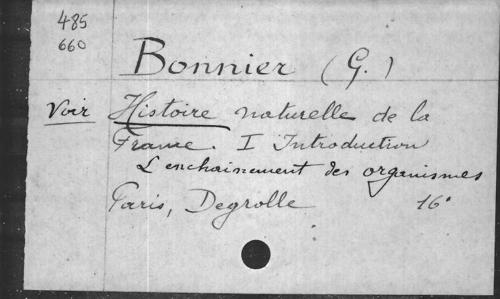 485
660
Bonnier (G.)
Voir Histoire naturelle de la
France. I Introduction
L'enchainement des organismes
Paris, Deyrolle 16°